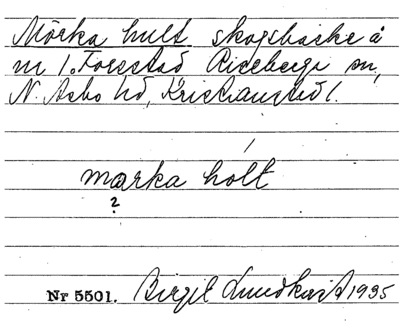 Mörka hult skogsbacke å
nr 1. Forestad Riseberga sn,
N. Åsbo hd, Kristianstad l.
marka holt
?
Nr 5501. Birgit Lundkvist 1935